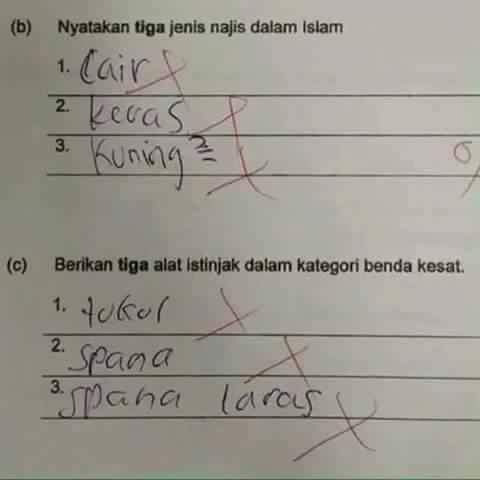 (b) Nyatakan tiga jenis najis dalam Islam
1. Cair
2. keras
3. Kuning
0
(c) Berikan tiga alat istinjak dalam kategori benda kesat.
1. tukul
2. spana
3. spana laras